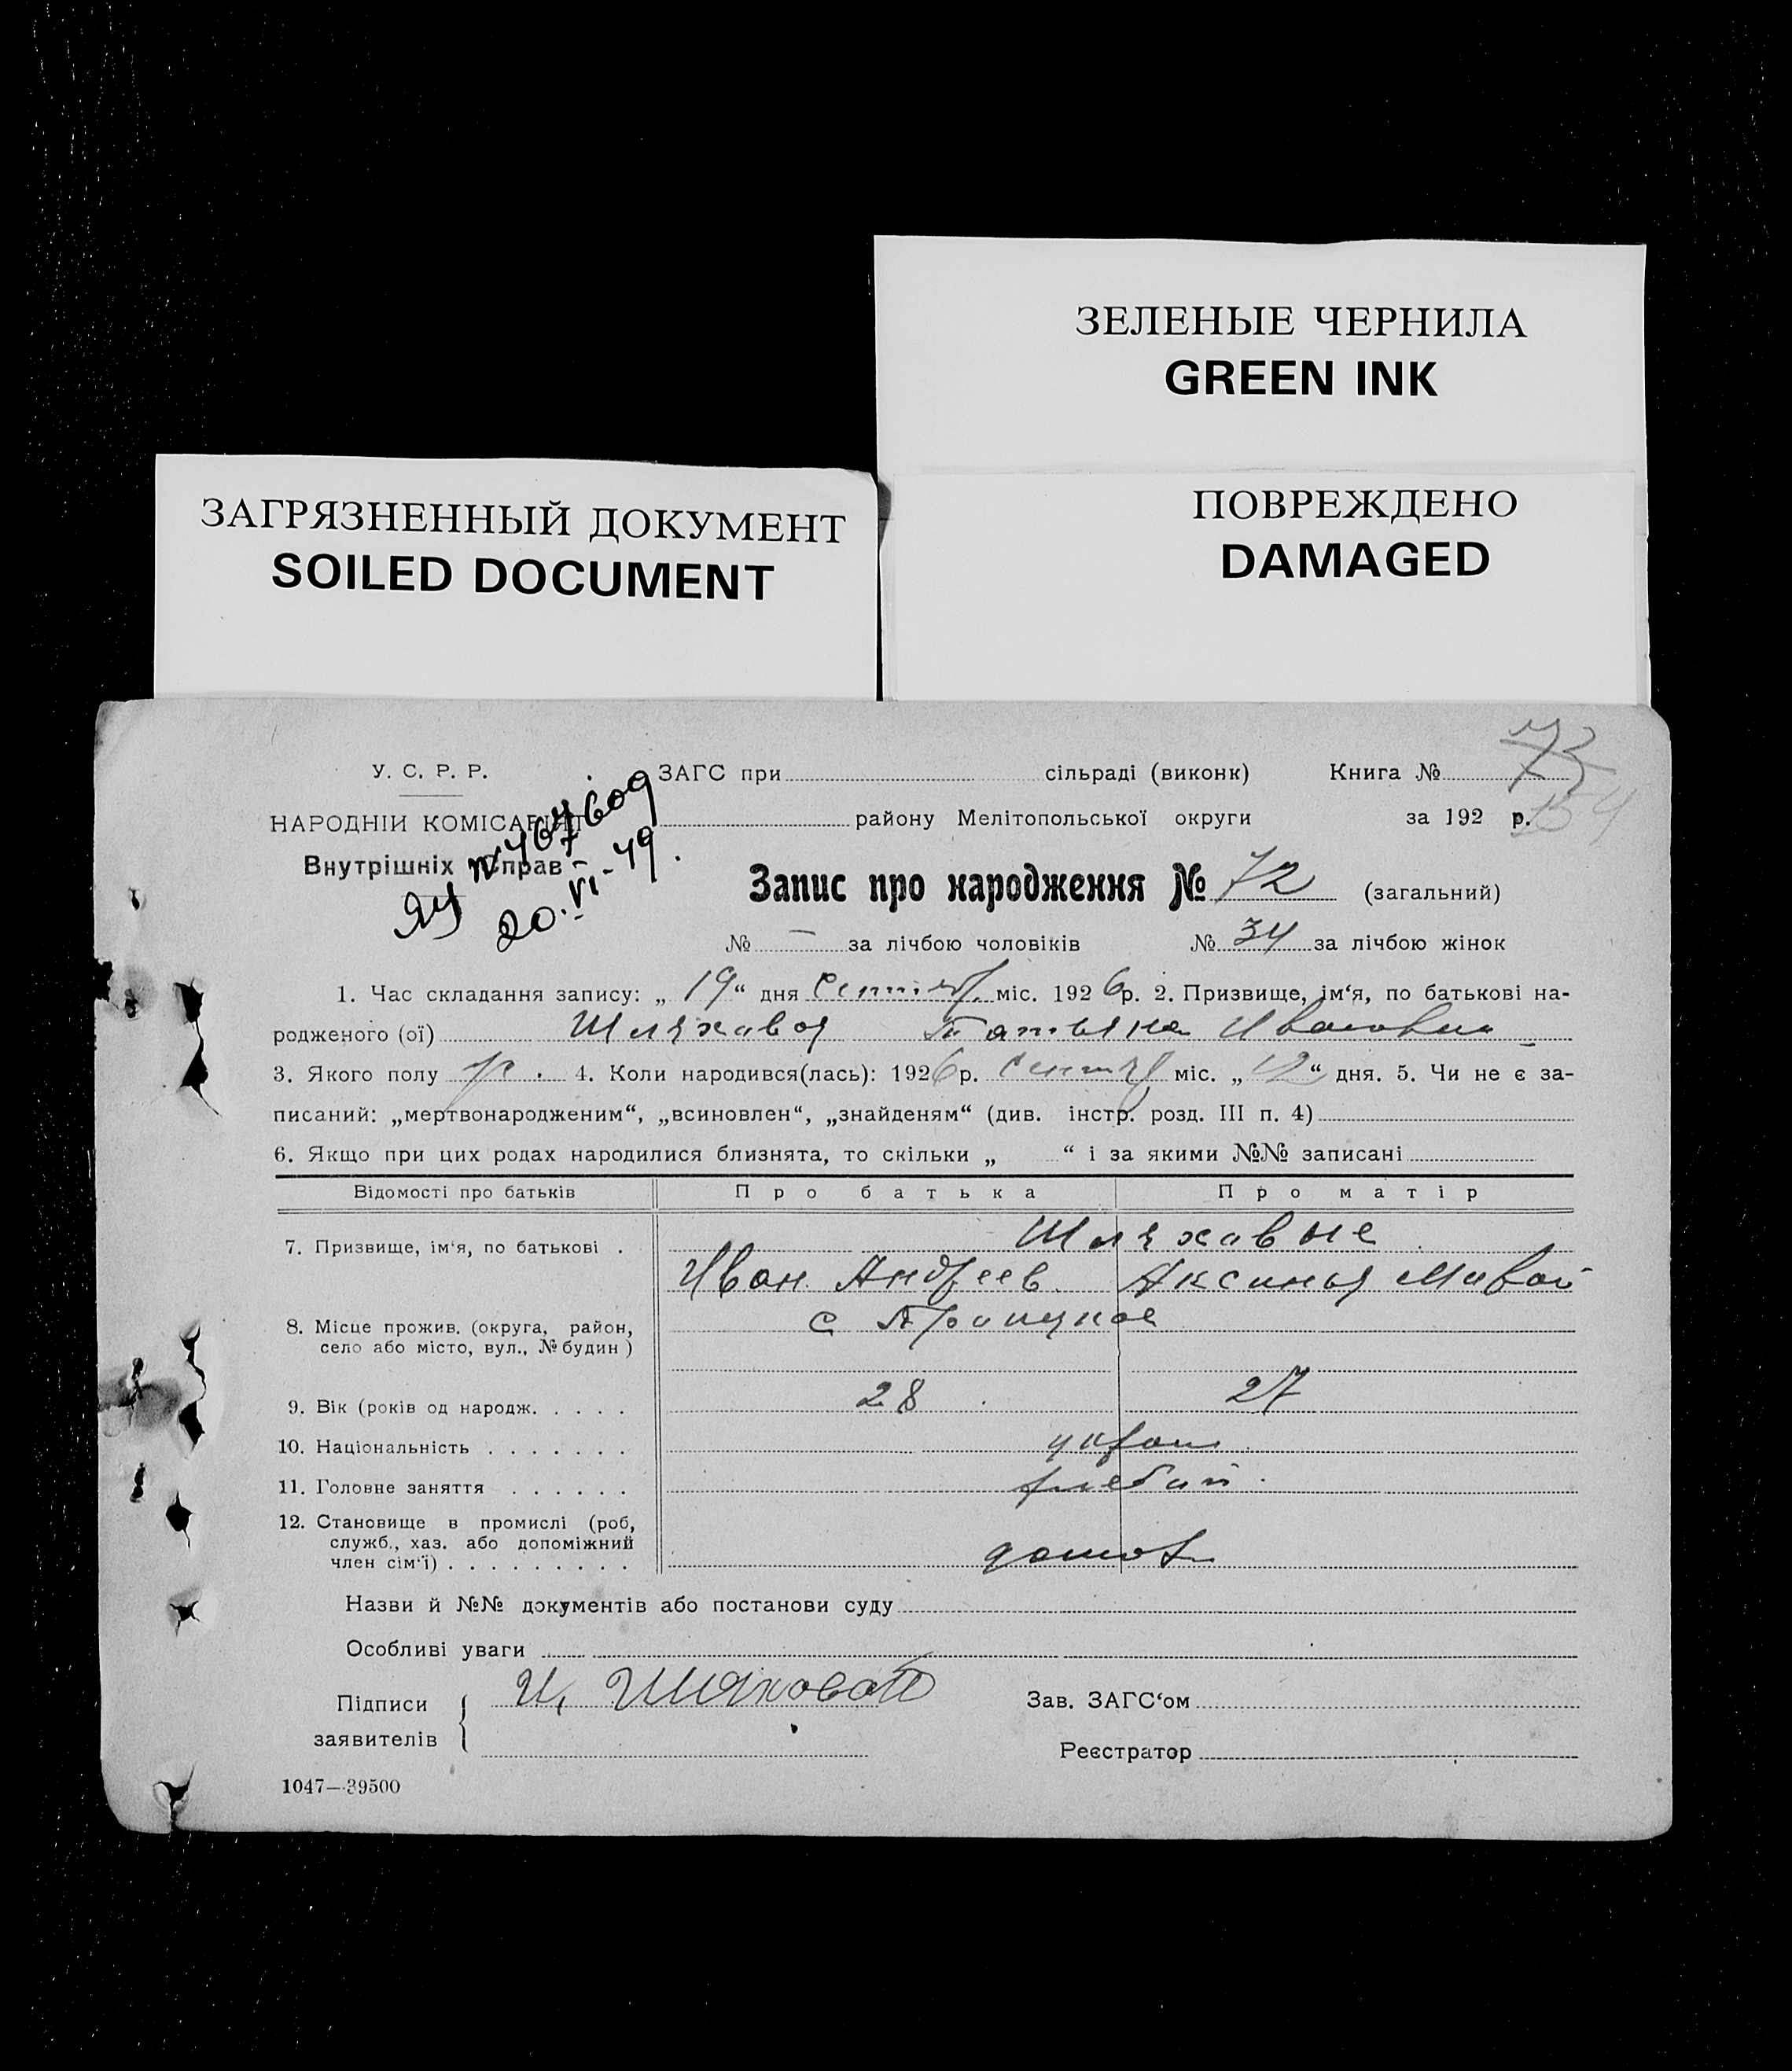 ЗЕЛЕНЫЕ ЧЕРНИЛА
GREEN INK
ЗАГРЯЗНЕННЫЙ ДОКУМЕНТ
SOILED DOCUMENT
ПОВРЕЖДЕНО
DAMAGED
У. С. Р. Р.
ЗАГС при сільраді (виконк) Книга №
НАРОДНІЙ КОМІСАРІЯТ
району Мелітопольської округи за 192 р. 154
Внутрішніх Справ
20.VI-49.
Запис про народження № 72 (загальний)
№ — за лічбою чоловіків № 34 за лічбою жінок
1. Час складання запису: „ 19 “ дня міс. 1926 р. 2. Призвище, ім‘я, по батькові на-
родженого (ої) Шляховая Татьяна Ивановна
3. Якого полу 4. Коли народився(лась): 1926 р. міс. „ 12 “ дня. 5. Чи не є за-
писаний: „мертвонародженим“, „всиновлен“, „знайденям“ (див. інстр. розд. III п. 4)
6. Якщо при цих родах народилися близнята, то скільки „ “ і за якими №№ записані
Відомості про батьків Про батька Про матір
Шляховые
7. Призвище, ім‘я, по батькові .
Иван Андреев Аксинья
8. Місце прожив. (округа, район, с
село або місто, вул., № будин )
9. Вік (років од народж. . . . . 28 27
10. Національність . . . . . . .
11. Головне заняття . . . . . .
12. Становище в промислі (роб,
служб., хаз. або допоміжний
член сім‘ї) . . . . . . . . .
Назви й №№ документів або постанови суду
Особливі уваги
Підписи И. Шляховой Зав. ЗАГС‘ом
заявителів
Реєстратор
1047—39500